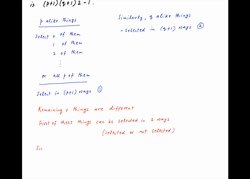 is (p+1)(q+1)2 - 1.
p alike things
Select 0 of them
1 of them
2 of them
⋮
or all p of them
Select in (p+1) ways ①
Similarly, q alike things
- Selected in (q+1) ways ②
Remaining r things are different
First of these things can be selected in 2 ways
(selected or not selected)